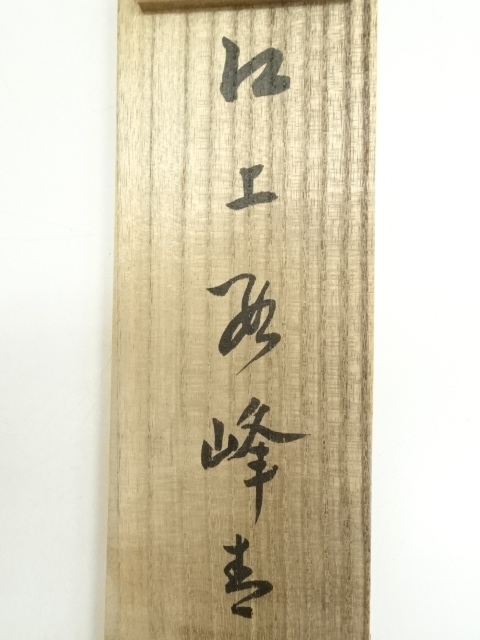 江上数峰青